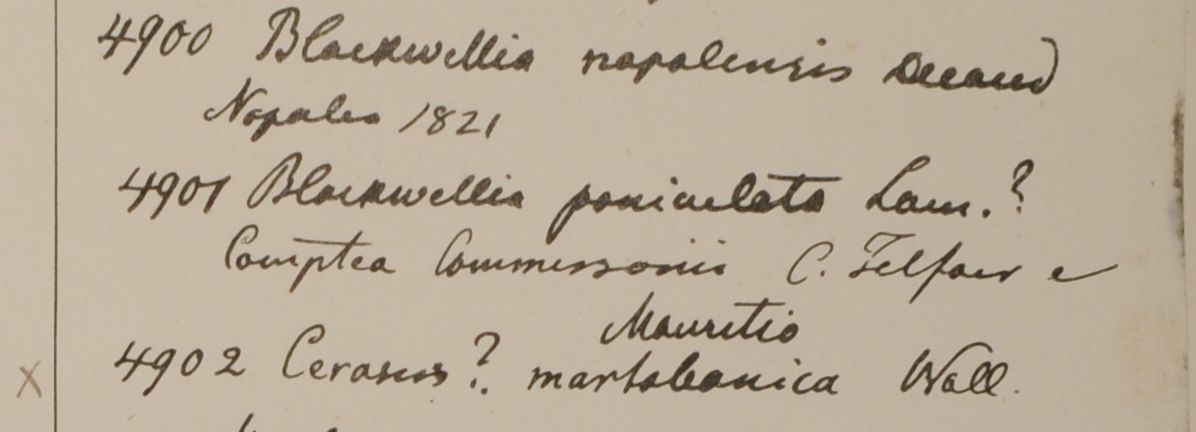 4900 Blackwellia napalensis Decand
Napalia 1821
4901 Blackwellia paniculata Lam.?
Comptea Commersonii C. Telfair e
Mauritio
4902 Cerasus? martabanica Wall.